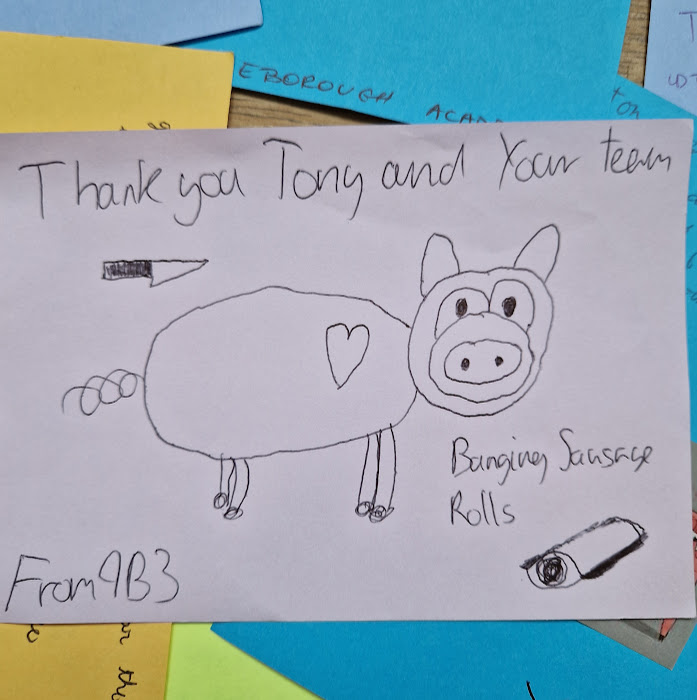 EBOROUGH ACADE
on
Thank you Tony and Your team
Banging Sausage
Rolls
From 9B3